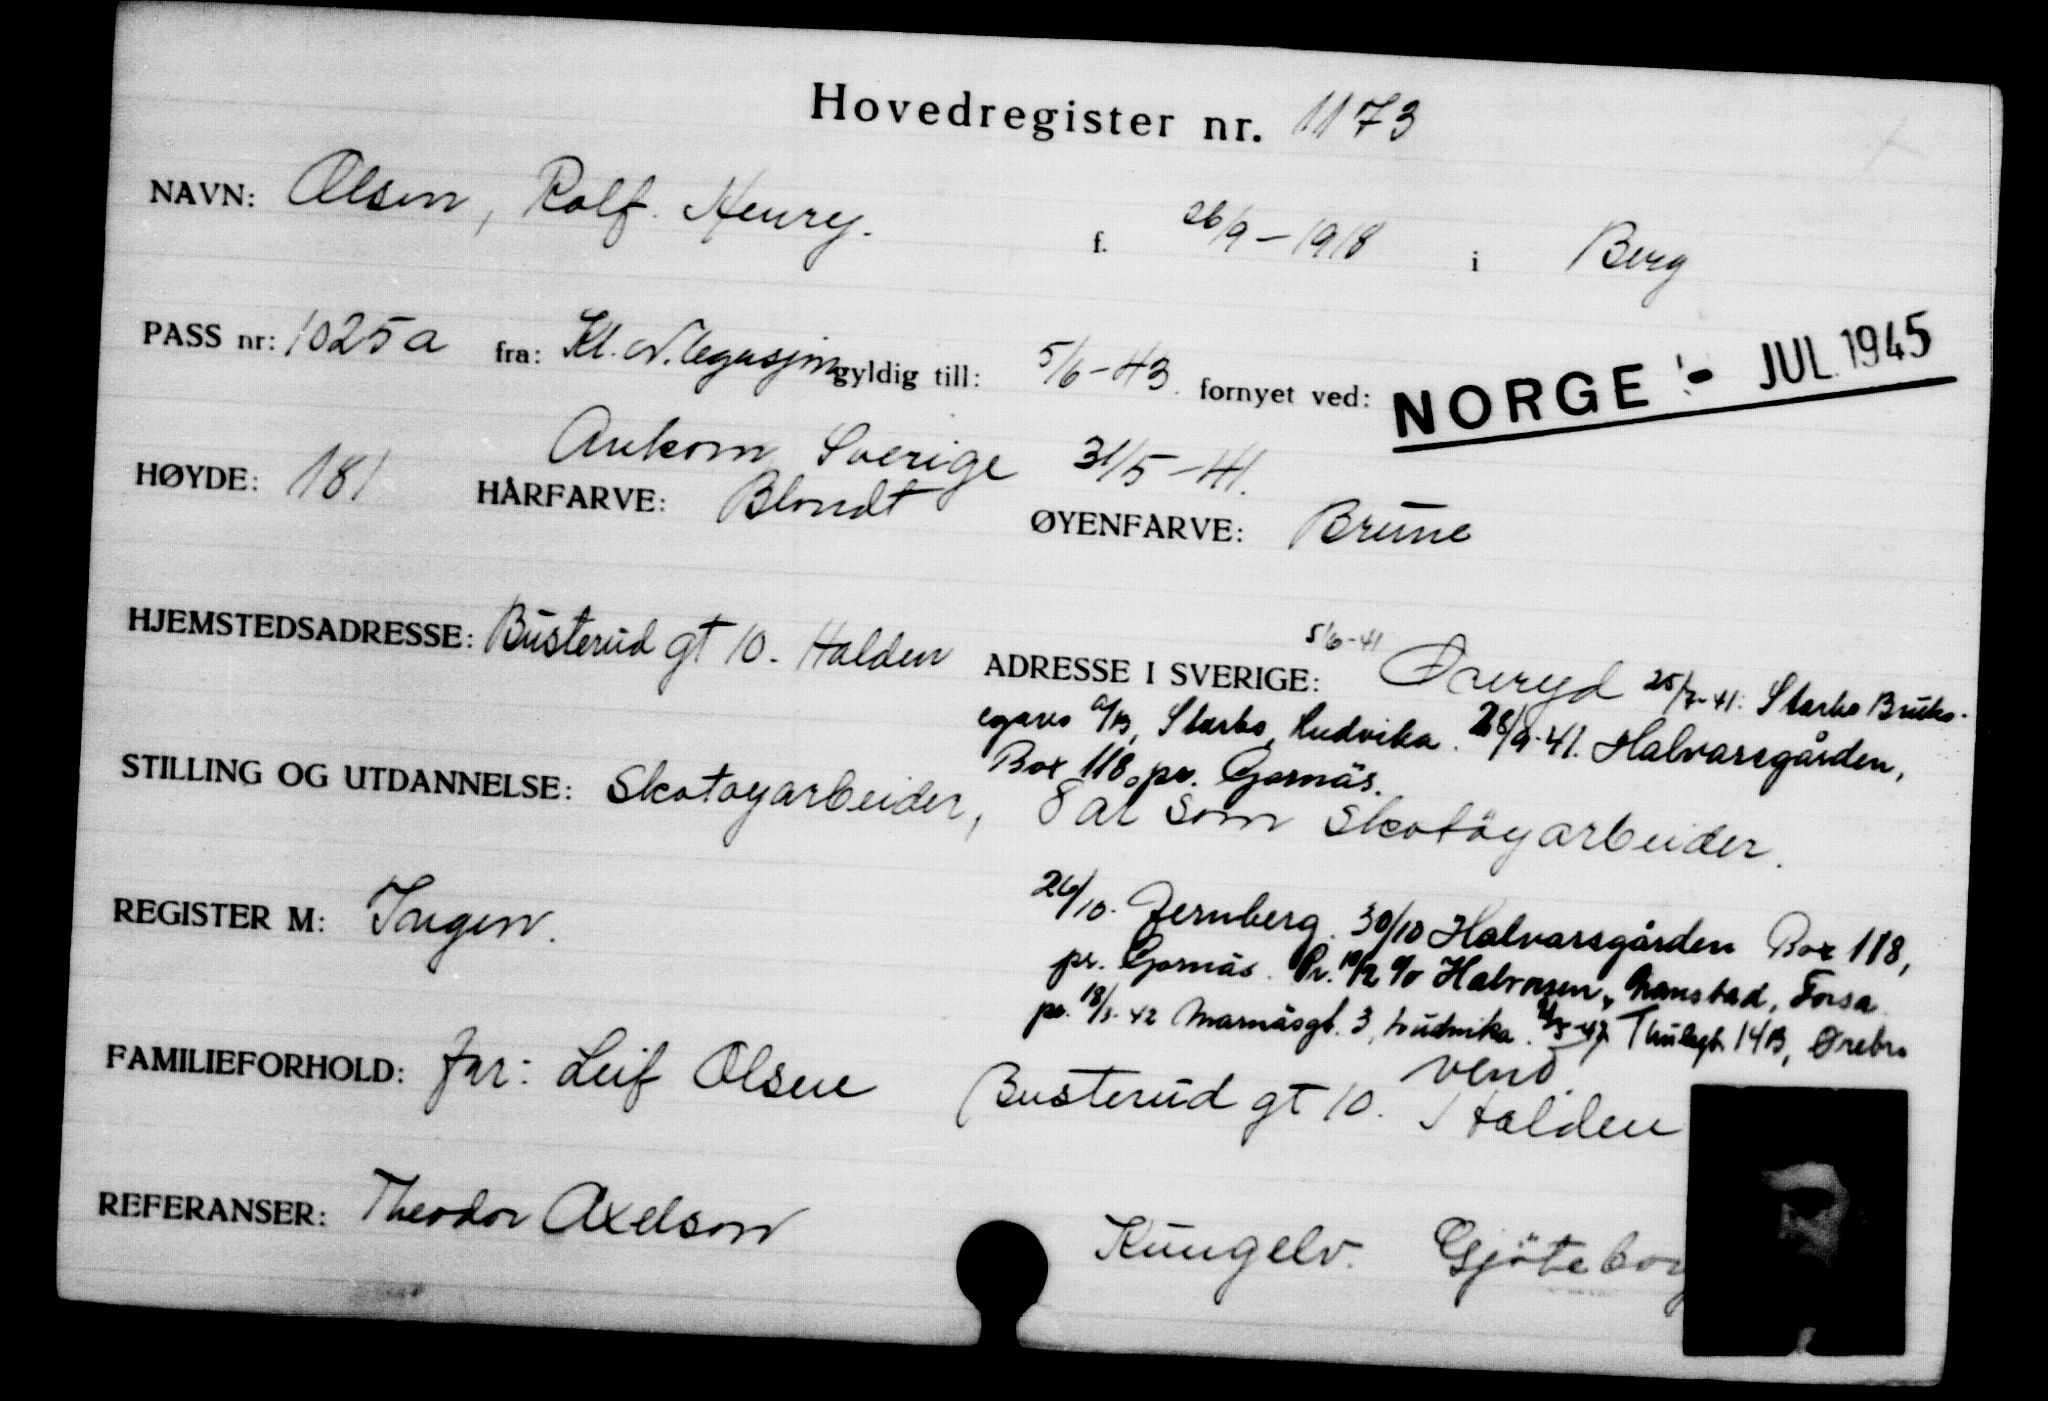 Hovedregister nr. 1173
NAVN: Olsen, Rolf Henry. f. 26/9-1918 i Berg
PASS nr: 1025a fra: Kl. N. legasjon gyldig till: 5/6-43. fornyet ved: NORGE - JUL. 1945
Ankom Sverige 31/5-41.
HØYDE: 181 HÅRFARVE: Blondt ØYENFARVE: Brune
HJEMSTEDSADRESSE: Busterud gt 10. Halden ADRESSE I SVERIGE: 5/6-41 Øreryd 25/7-41: Starbo Bruks-
egares A/B, Starbo, Ludvika. 28/9-41. Halvarsgården,
Box 118, pr. Gornäs.
STILLING OG UTDANNELSE: Skotøyarbeider, 8 år som skotöyarbeider.
REGISTER M: Ingen. 26/10. Jernberg. 30/10 Halvarsgården Box 118,
pr. Gornäs. Pr. 10/12 c/o Halvorsen, Granstad, Forsa.
pr. 18/3-42 Marnäsgt. 3, Ludvika. Thulegt. 14B, Ørebro
vend.
FAMILIEFORHOLD: far: Leif Olsen Busterud gt 10. Halden
REFERANSER: Theodor Axelson Kungelv. Gjøteborg